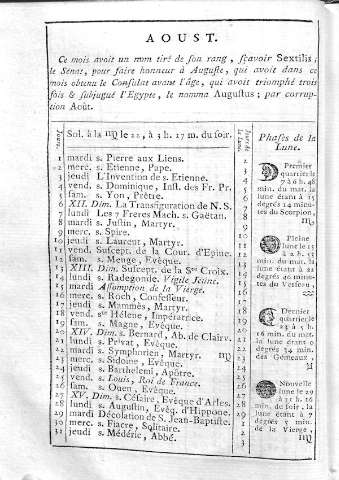 AOUST.
Ce mois avoit un nom tiré de son rang, sçavoir Sextilis;
le Sénat, pour faire honneur à Auguste, qui avoit dans ce
mois obtenu le Consulat avant l'âge, qui avoit triomphé trois
fois & subjugué l'Egypte, le nomma Augustus; par corrup-
tion Août.
Jours.
Sol. à la ♍ le 22, à 3 h. 17 m. du soir.
1 mardi s. Pierre aux Liens.
2 merc. s. Etienne, Pape.
3 jeudi L'Invention de s. Etienne.
4 vend. s. Dominique, Inst. des Fr. Pr.
5 sam. s. Yon, Prêtre.
6 XII. Dim. La Transfiguration de N. S.
7 lundi Les 7 Freres Mach. s. Gaëtan.
8 mardi s. Justin, Martyr.
9 merc. s. Spire.
10 jeudi s. Laurent, Martyr.
11 vend. Suscept. de la Cour. d'Epine.
12 sam. s. Menge, Evêque.
13 XIII. Dim. Suscept. de la Ste Croix.
14 lundi s. Radegonde. Vigile Jeune.
15 mardi Assomption de la Vierge.
16 merc. s. Roch, Confesseur.
17 jeudi s. Mammès, Martyr.
18 vend. ste Hélene, Impératrice.
19 sam. s. Magne, Evêque.
20 XIV. Dim. s. Bernard, Ab. de Clairv.
21 lundi s. Privat, Evêque.
22 mardi s. Symphorien, Martyr. ♍
23 merc. s. Sidoine, Evêque.
24 jeudi s. Barthelemi, Apôtre.
25 vend. s. Louis, Roi de France.
26 sam. s. Ouen, Evêque.
27 XV. Dim. s. Césaire, Evêque d'Arles.
28 lundi s. Augustin, Evêq. d'Hippone.
29 mardi Décolation de S. Jean-Baptiste.
30 merc. s. Fiacre, Solitaire.
31 jeudi s. Médéric, Abbé.
Phases de la
Lune.
Dernier
quartier le
7 à 6 h. 48
min. du mat. la
lune étant à 15
degrés 14 minu-
tes du Scorpion,
♏
Pleine
lune le 15
à 2 h. 15
min. du mat. la
lune étant à 22
degrés 40 minu-
tes du Verseau,
Dernier
quartier le
23 à 5 h.
16 min. du mat.
la lune étant à 0
degrés 34 min.
des Gémeaux,
Nouvelle
lune le 29
à 11 h. 16
min. du soir, la
lune étant à 7
degrés 5 min.
de la Vierge,
♍